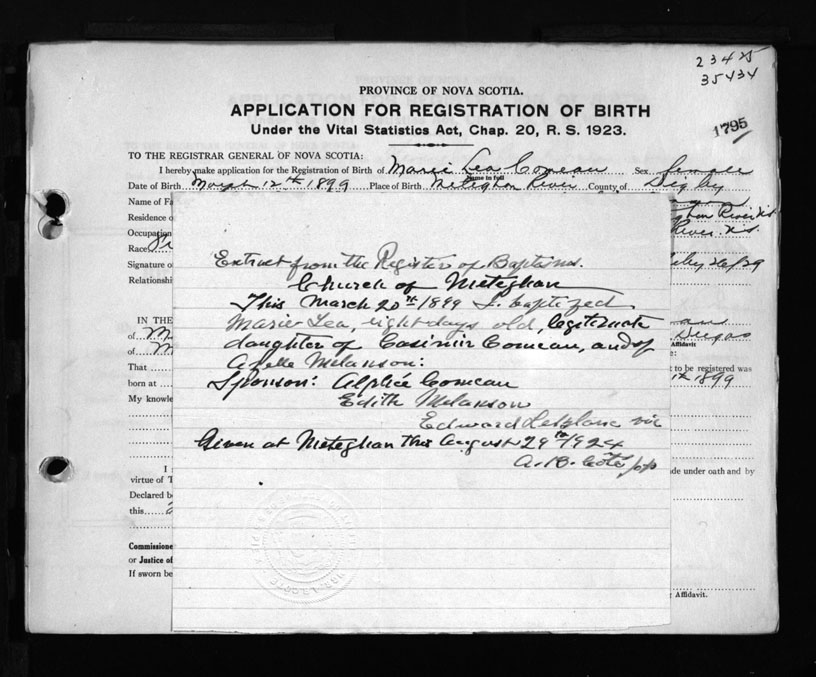 23425
35434
1795
PROVINCE OF NOVA SCOTIA.
APPLICATION FOR REGISTRATION OF BIRTH
Under the Vital Statistics Act, Chap. 20, R. S. 1923.
TO THE REGISTRAR GENERAL OF NOVA SCOTIA:
I hereby make application for the Registration of Birth of Marie Lea Comeau Sex female
Name in full
Date of Birth March 12th 1899 Place of Birth Meteghan River County of Digby
Name of Fa
Residence o
River N.S.
Occupation
River. N.S.
Race
Signature o
Relationshi
Extract from the Register of Baptisms.
Church of Meteghan
This March 20th 1899 I. baptized
Marie Lea, eight days old, legitimate
daughter of Casimir Comeau, and of
Azelle Melanson:
Sponson: Alphée Comeau
Edith Melanson
Edward LeBlanc vic
Given at Meteghan this August 29th 1924
A. B. Côté pp
IN THE
of M
of M
Affidavit
That
to be registered was
born at
1899
My knowle
I
de under oath and by
virtue of T
Declared b
this
Commissione
or Justice of
If sworn be
Affidavit.